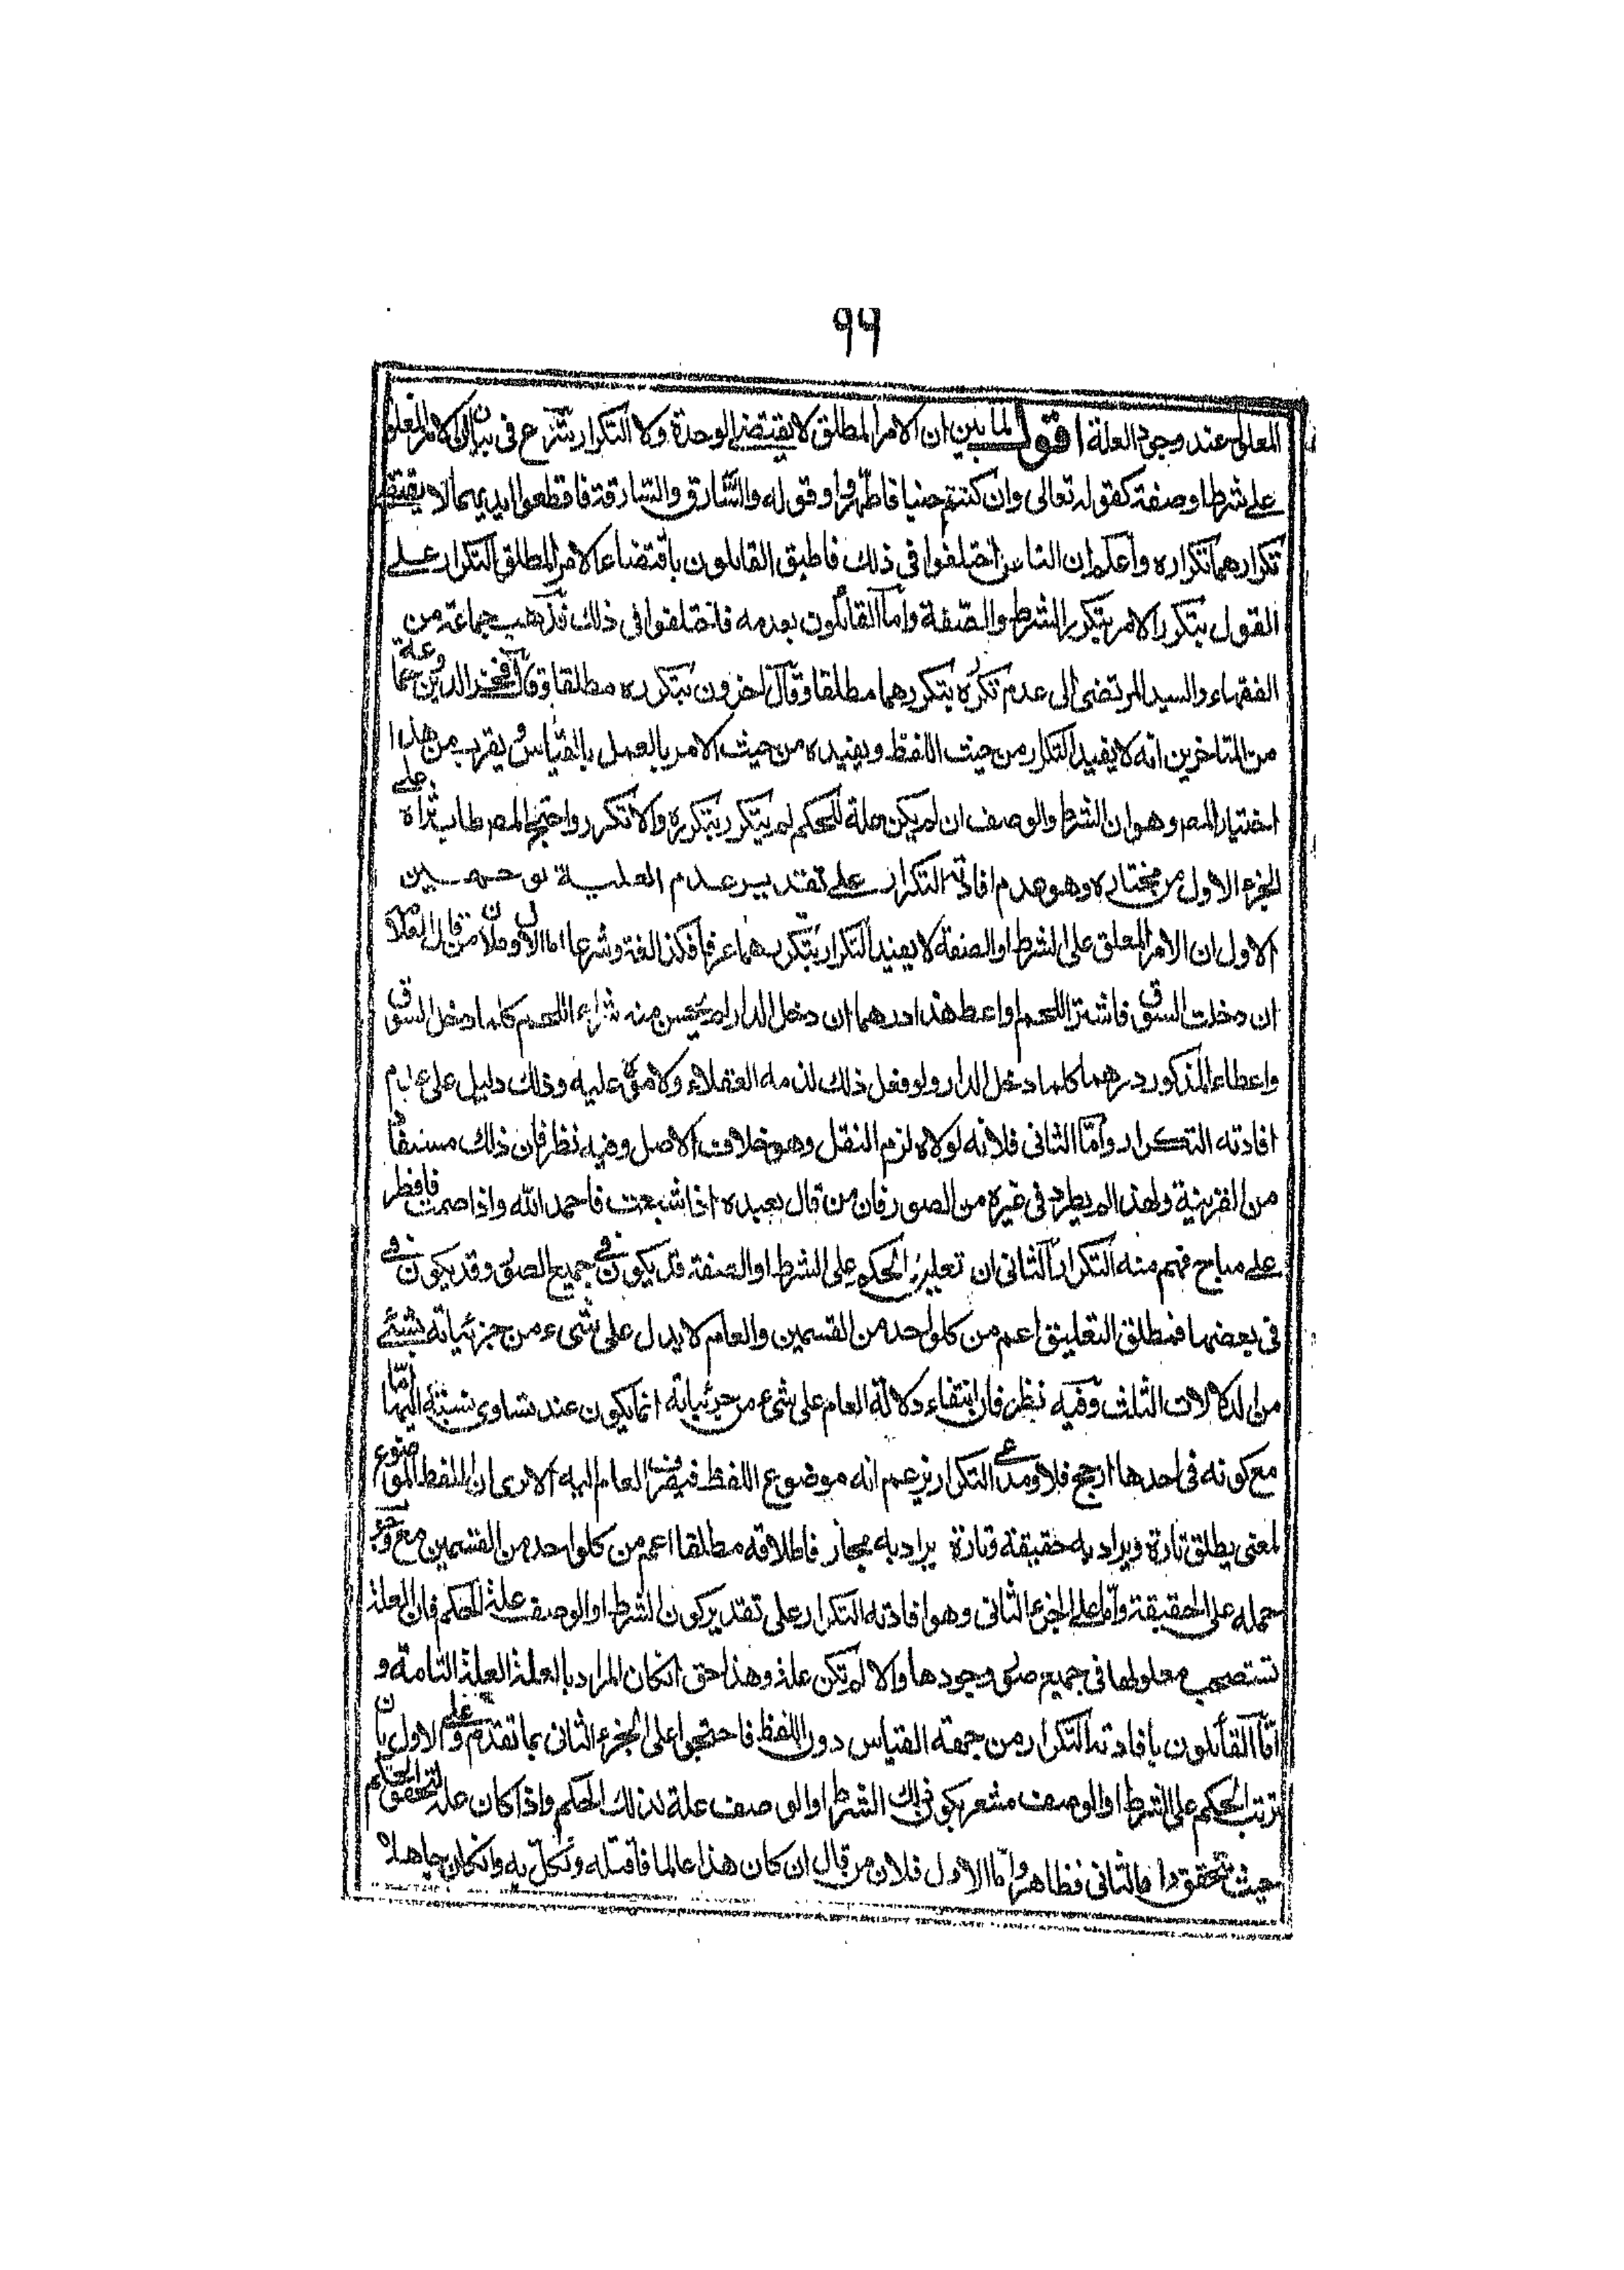 ٩٩
المعلول عند وجود العلة اقول لما بين ان الامر المطلق لا يقتضي الوحدة ولا التكرار شرع في بيان ان الامر المعلق
على شرط او صفة كقوله تعالى وان كنتم جنبا فاطهروا وقوله والسارق والسارقة فاقطعوا ايديهما لا يقتضي
تكرارهما تكراره واعلم ان الناس اختلفوا في ذلك فاطبق القائلون باقتضاء الامر المطلق التكرار على
القول بتكرر الامر بتكرر الشرط والصفة واما القائلون بعدمه فاختلفوا في ذلك فذهب جماعة من
الفقهاء والسيد المرتضى الى عدم تكرره بتكررهما مطلقا وقال اخرون بتكرره مطلقا وقال فخر الدين وجماعة
من المتاخرين انه لا يفيد التكرار من حيث اللفظ ويفيده من حيث الامر بالعمل بالقياس ويقرب من هذا
اختيار المص وهو ان الشرط والوصف ان لم يكن علة للحكم لم يتكرر بتكرره والا تكرر واحتج المص طاب ثراه على
الجزء الاول من مختاره وهو عدم افادته التكرار على تقدير عدم العلية بوجهين
الاول ان الامر المعلق على الشرط او الصفة لا يفيد التكرار بتكررهما عرفا فكذا لغة وشرعا اما الاول فلان من قال لغلامه
ان دخلت السوق فاشتر اللحم او اعط هذا درهما ان دخل الدار لم يحسن منه شراء اللحم كلما دخل السوق
واعطاء المذكور درهما كلما دخل الدار ولو فعل ذلك لذمه العقلاء ولاموه عليه وذلك دليل على عدم
افادته التكرار واما الثاني فلانه لولاه لزم النقل وهو خلاف الاصل وفيه نظر فان ذلك مستفاد
من القرينة ولهذا لم يطرد في غيره من الصور فان من قال لعبده اذا شبعت فاحمد الله واذا صمت فافطر
على مباح فهم منه التكرار الثاني ان تعليق الحكم على الشرط او الصفة قد يكون في جميع الصور وقد يكون في
في بعضها فمطلق التعليق اعم من كل واحد من القسمين والعام لا يدل على شيء من جزئياته بشيء
من الدلالات الثلث وفيه نظر فان انتفاء دلالة العام على شيء من جزئياته انما يكون عند تساوي نسبته اليها اما
مع كونه في احدها ارجح فلا ومدعى التكرار يزعم انه موضوع اللفظ فيصرف العام اليه الا ترى ان اللفظ الموضوع
لمعنى يطلق تارة ويراد به حقيقة وتارة يراد به مجاز فاطلاقه مطلقا اعم من كل واحد من القسمين مع وجوب
حمله على الحقيقة واما على الجزء الثاني وهو افادته التكرار على تقدير كون الشرط او الوصف علة للحكم فان العلة
تستصحب معلولها في جميع صور وجودها والا لم تكن علة وهذا حق ان كان المراد بالعلة العلة التامة و
اما القائلون بافادته التكرار من جهة القياس دون اللفظ فاحتجوا على الجزء الثاني بما تقدم وعلى الاول بان
ترتب الحكم على الشرط او الوصف مشعر بكون ذلك الشرط او الوصف علة لذلك الحكم واذا كان علة تحقق الحكم
حيث تحقق واما الثاني فظاهر واما الاول فلان من قال ان كان هذا عالما فاقتله ونكل به وان كان جاهلا